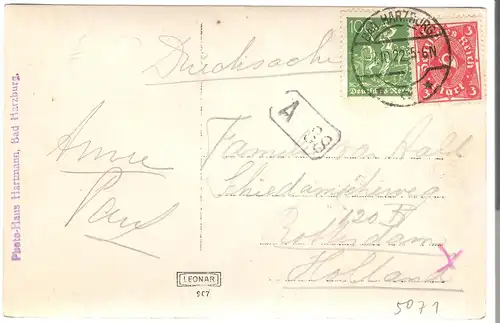 Photo-Haus Hartmann, Bad Harzburg.
Drucksache
Anne
Paul
LEONAR
Deutsches Reich
10
BAD HARZBURG
22.5-6N
Deutsches Reich
3 Mark 3
A
Familie
Schiedamscheweg
120 B
Rotterdam
Holland
X
5071